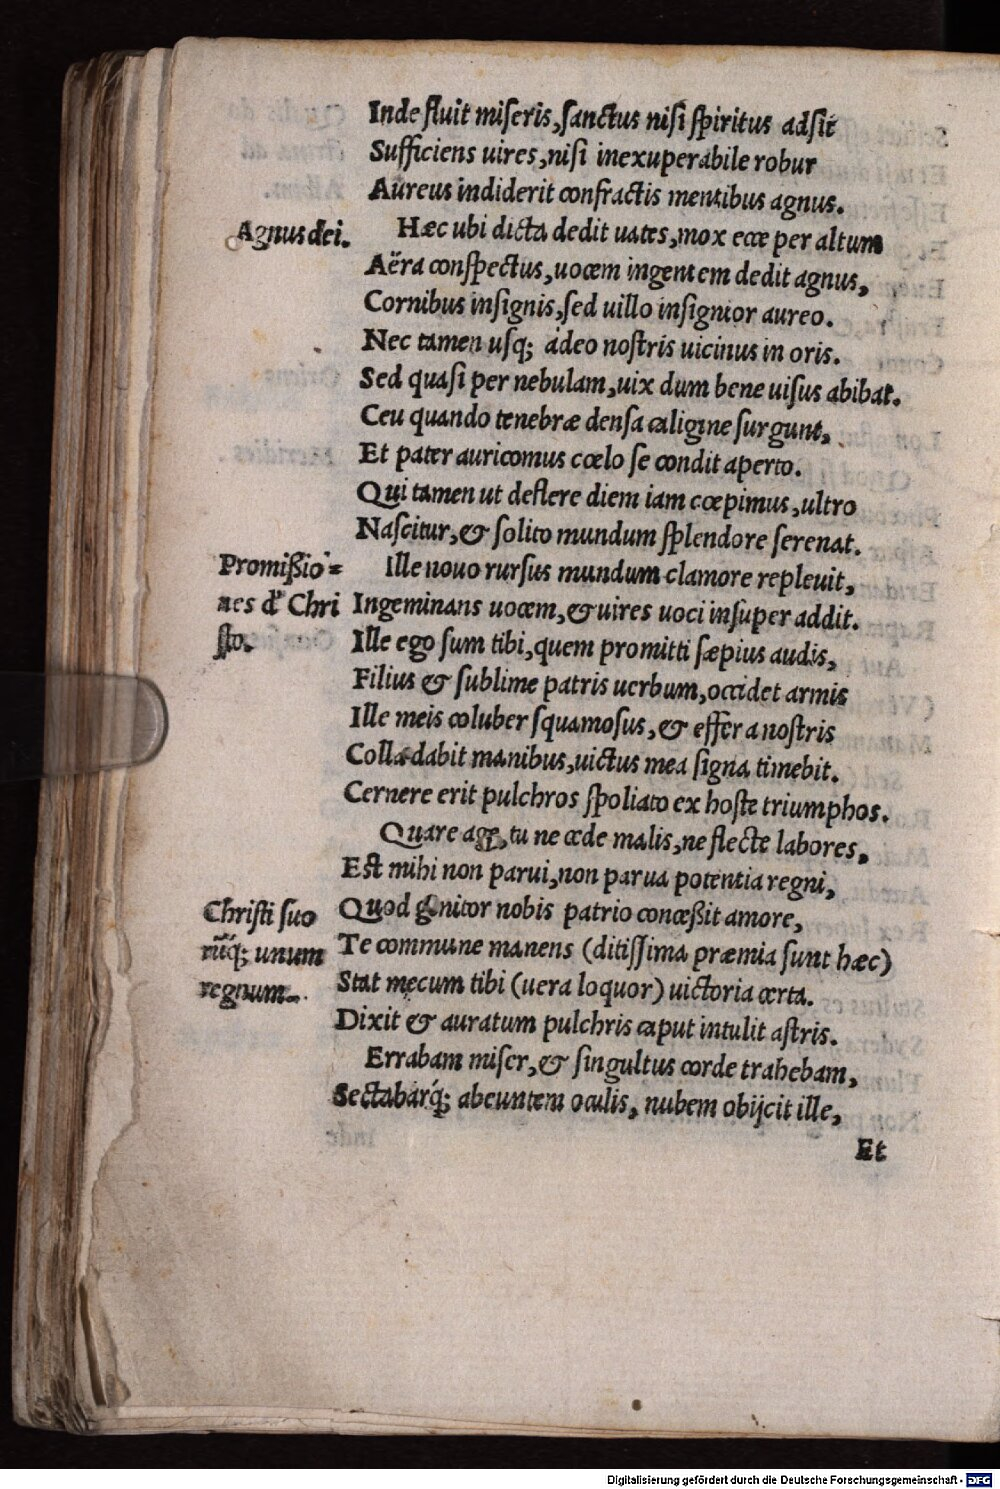 Inde fluit miseris, sanctus nisi spiritus adsit
Sufficiens uires, nisi inexuperabile robur
Aureus indiderit confractis mentibus agnus.
Agnus dei.
Hæc ubi dicta dedit uates, mox ecce per altum
Aëra conspectus, uocem ingentem dedit agnus,
Cornibus insignis, sed uillo insignior aureo.
Nec tamen usq; adeo nostris uicinus in oris.
Sed quasi per nebulam, uix dum bene uisus abibat.
Ceu quando tenebræ densa caligine surgunt,
Et pater auricomus cœlo se condit aperto.
Qui tamen ut deflere diem iam cœpimus, ultro
Nascitur, & solito mundum splendore serenat.
Promißio=
nes d' Chri
sto.
Ille nouo rursus mundum clamore repleuit,
Ingeminans uocem, & uires uoci insuper addit.
Ille ego sum tibi, quem promitti sæpius audis,
Filius & sublime patris uerbum, occidet armis
Ille meis coluber squamosus, & effera nostris
Colla dabit manibus, uictus mea signa timebit.
Cernere erit pulchros spoliato ex hoste triumphos.
Quare age, tu ne cede malis, ne flecte labores,
Est mihi non parui, non parua potentia regni,
Christi suo
rūq́; unum
regnum.
Quod genitor nobis patrio conceßit amore,
Te commune manens (ditissima præmia sunt hæc)
Stat mecum tibi (uera loquor) uictoria certa.
Dixit & auratum pulchris caput intulit astris.
Errabam miser, & singultus corde trahebam,
Sectabarq́; abeuntem oculis, nubem obijcit ille,
Et
Digitalisierung gefördert durch die Deutsche Forschungsgemeinschaft - DFG